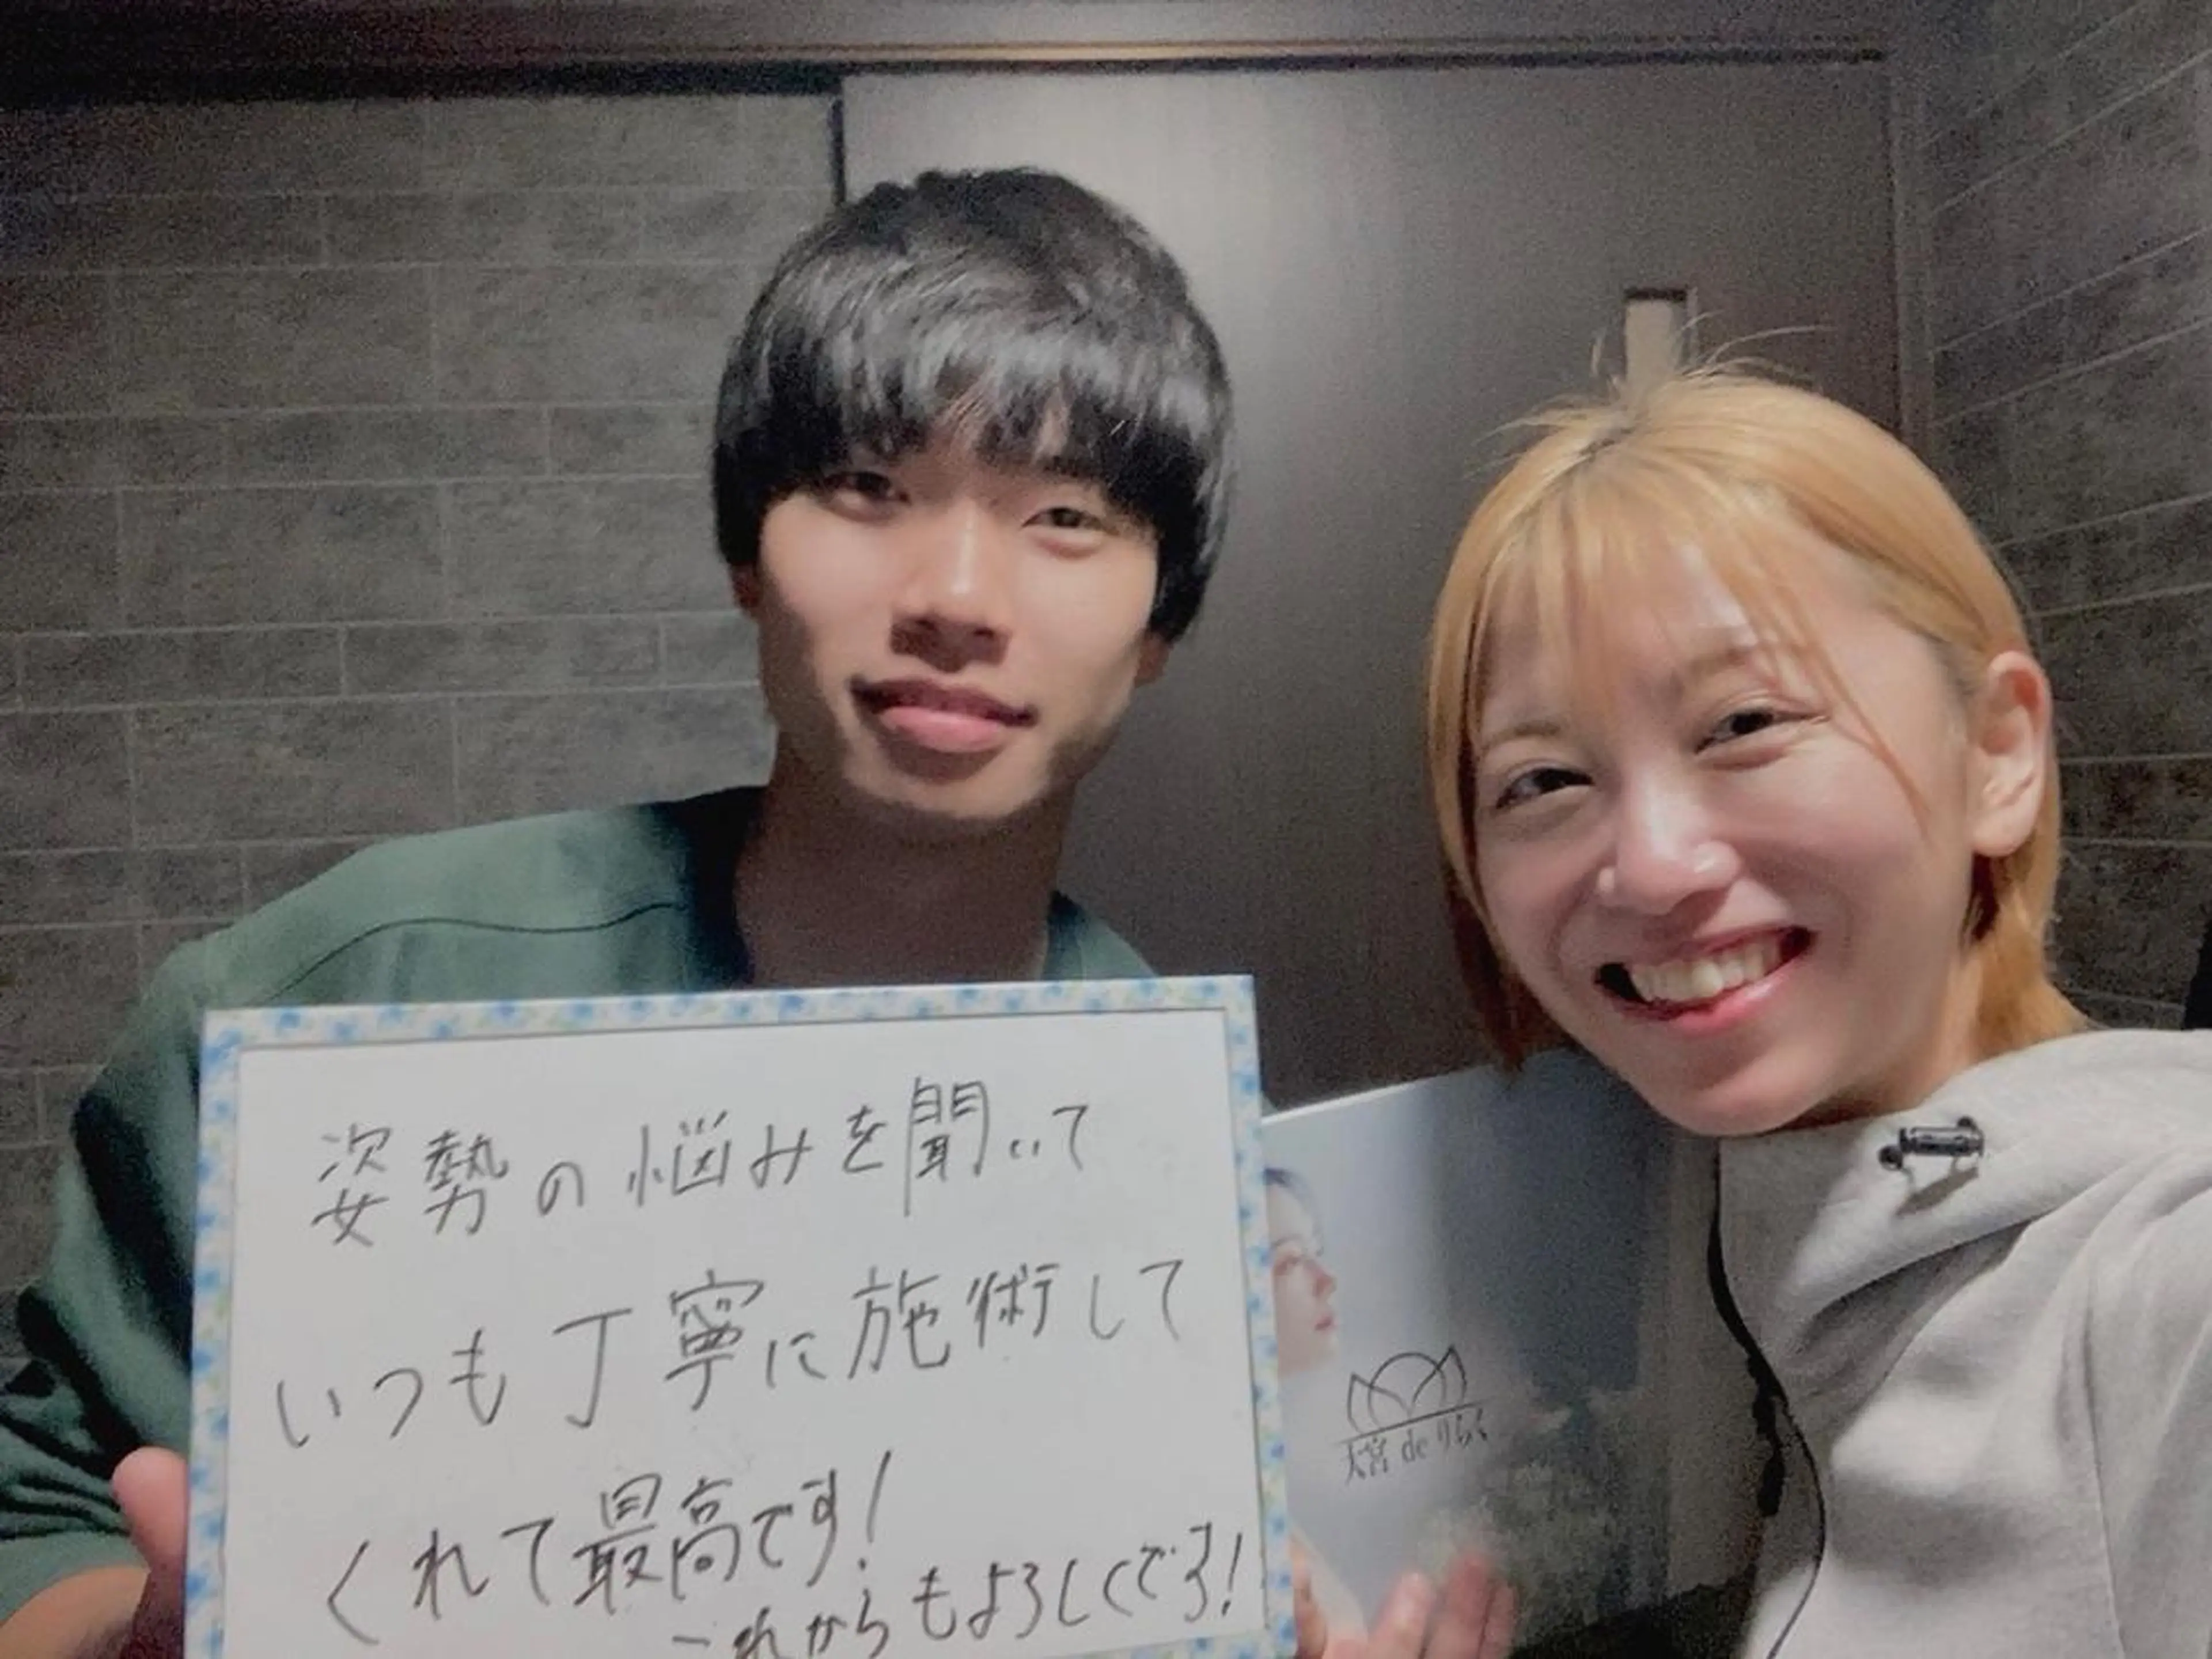 姿勢の悩みを聞いて
いつも丁寧に施術して
くれて最高です!
これからもよろしくです!
大宮 de りらく